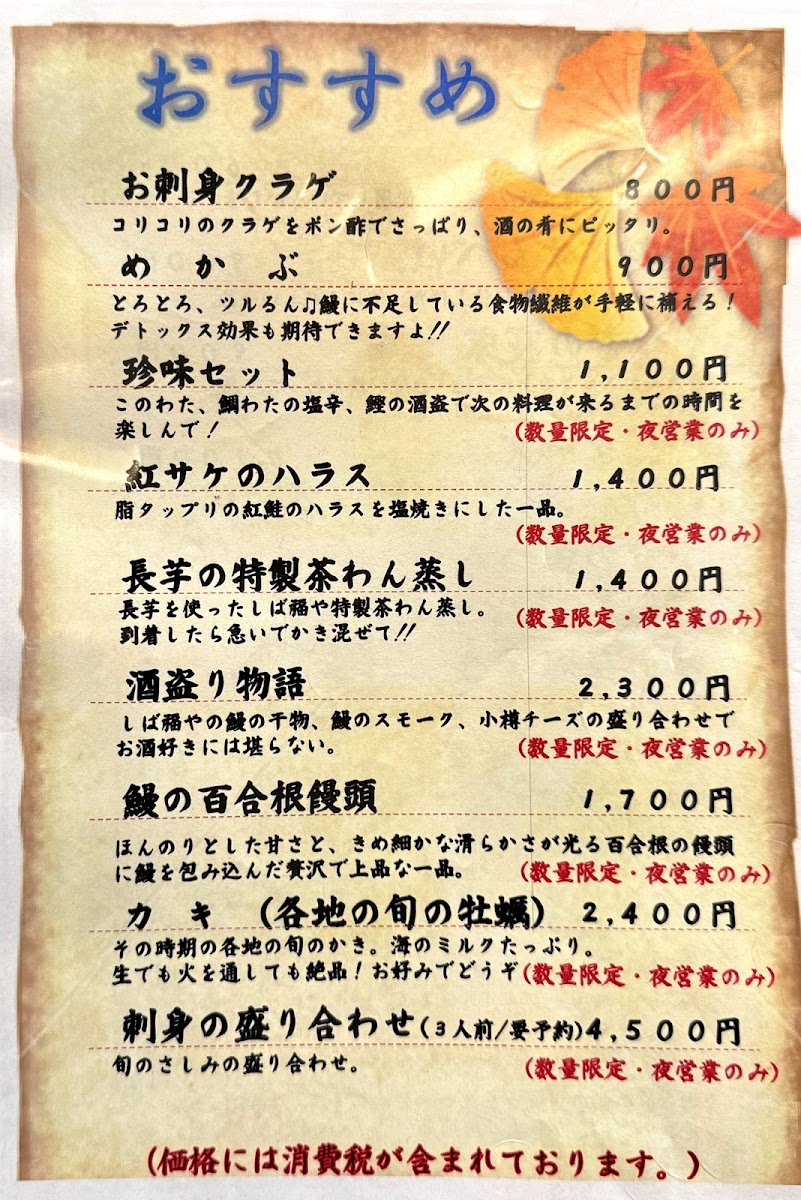 おすすめ
お刺身クラゲ 800円
コリコリのクラゲをポン酢でさっぱり、酒の肴にピッタリ。
めかぶ 900円
とろとろ、ツルるん♫鰻に不足している食物繊維が手軽に補える！
デトックス効果も期待できますよ!!
珍味セット 1,100円
このわた、鯛わたの塩辛、鰹の酒盗で次の料理が来るまでの時間を
楽しんで！ (数量限定・夜営業のみ)
紅サケのハラス 1,400円
脂タップリの紅鮭のハラスを塩焼きにした一品。
(数量限定・夜営業のみ)
長芋の特製茶わん蒸し 1,400円
長芋を使ったしば福や特製茶わん蒸し。 (数量限定・夜営業のみ)
到着したら急いでかき混ぜて!!
酒盗り物語 2,300円
しば福やの鰻の干物、鰻のスモーク、小樽チーズの盛り合わせで
お酒好きには堪らない。 (数量限定・夜営業のみ)
鰻の百合根饅頭 1,700円
ほんのりとした甘さと、きめ細かな滑らかさが光る百合根の饅頭
に鰻を包み込んだ贅沢で上品な一品。 (数量限定・夜営業のみ)
カキ (各地の旬の牡蠣) 2,400円
その時期の各地の旬のかき。海のミルクたっぷり。
生でも火を通しても絶品！お好みでどうぞ (数量限定・夜営業のみ)
刺身の盛り合わせ(3人前/要予約) 4,500円
旬のさしみの盛り合わせ。 (数量限定・夜営業のみ)
(価格には消費税が含まれております。)